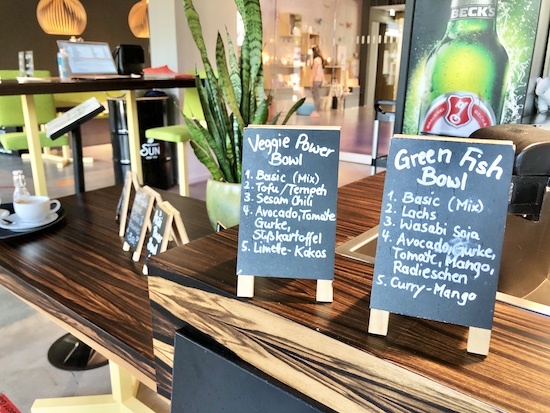 BECK'S
SUN
Veggie Power
Bowl
1. Basic (Mix)
2. Tofu/Tempeh
3. Sesam Chili
4. Avocado, Tomate
Gurke,
Süßkartoffel
5. Limette-Kokos
Green Fish
Bowl
1. Basic (Mix)
2. Lachs
3. Wasabi Soja
4. Avocado, Gurke,
Tomate, Mango,
Radieschen
5. Curry-Mango